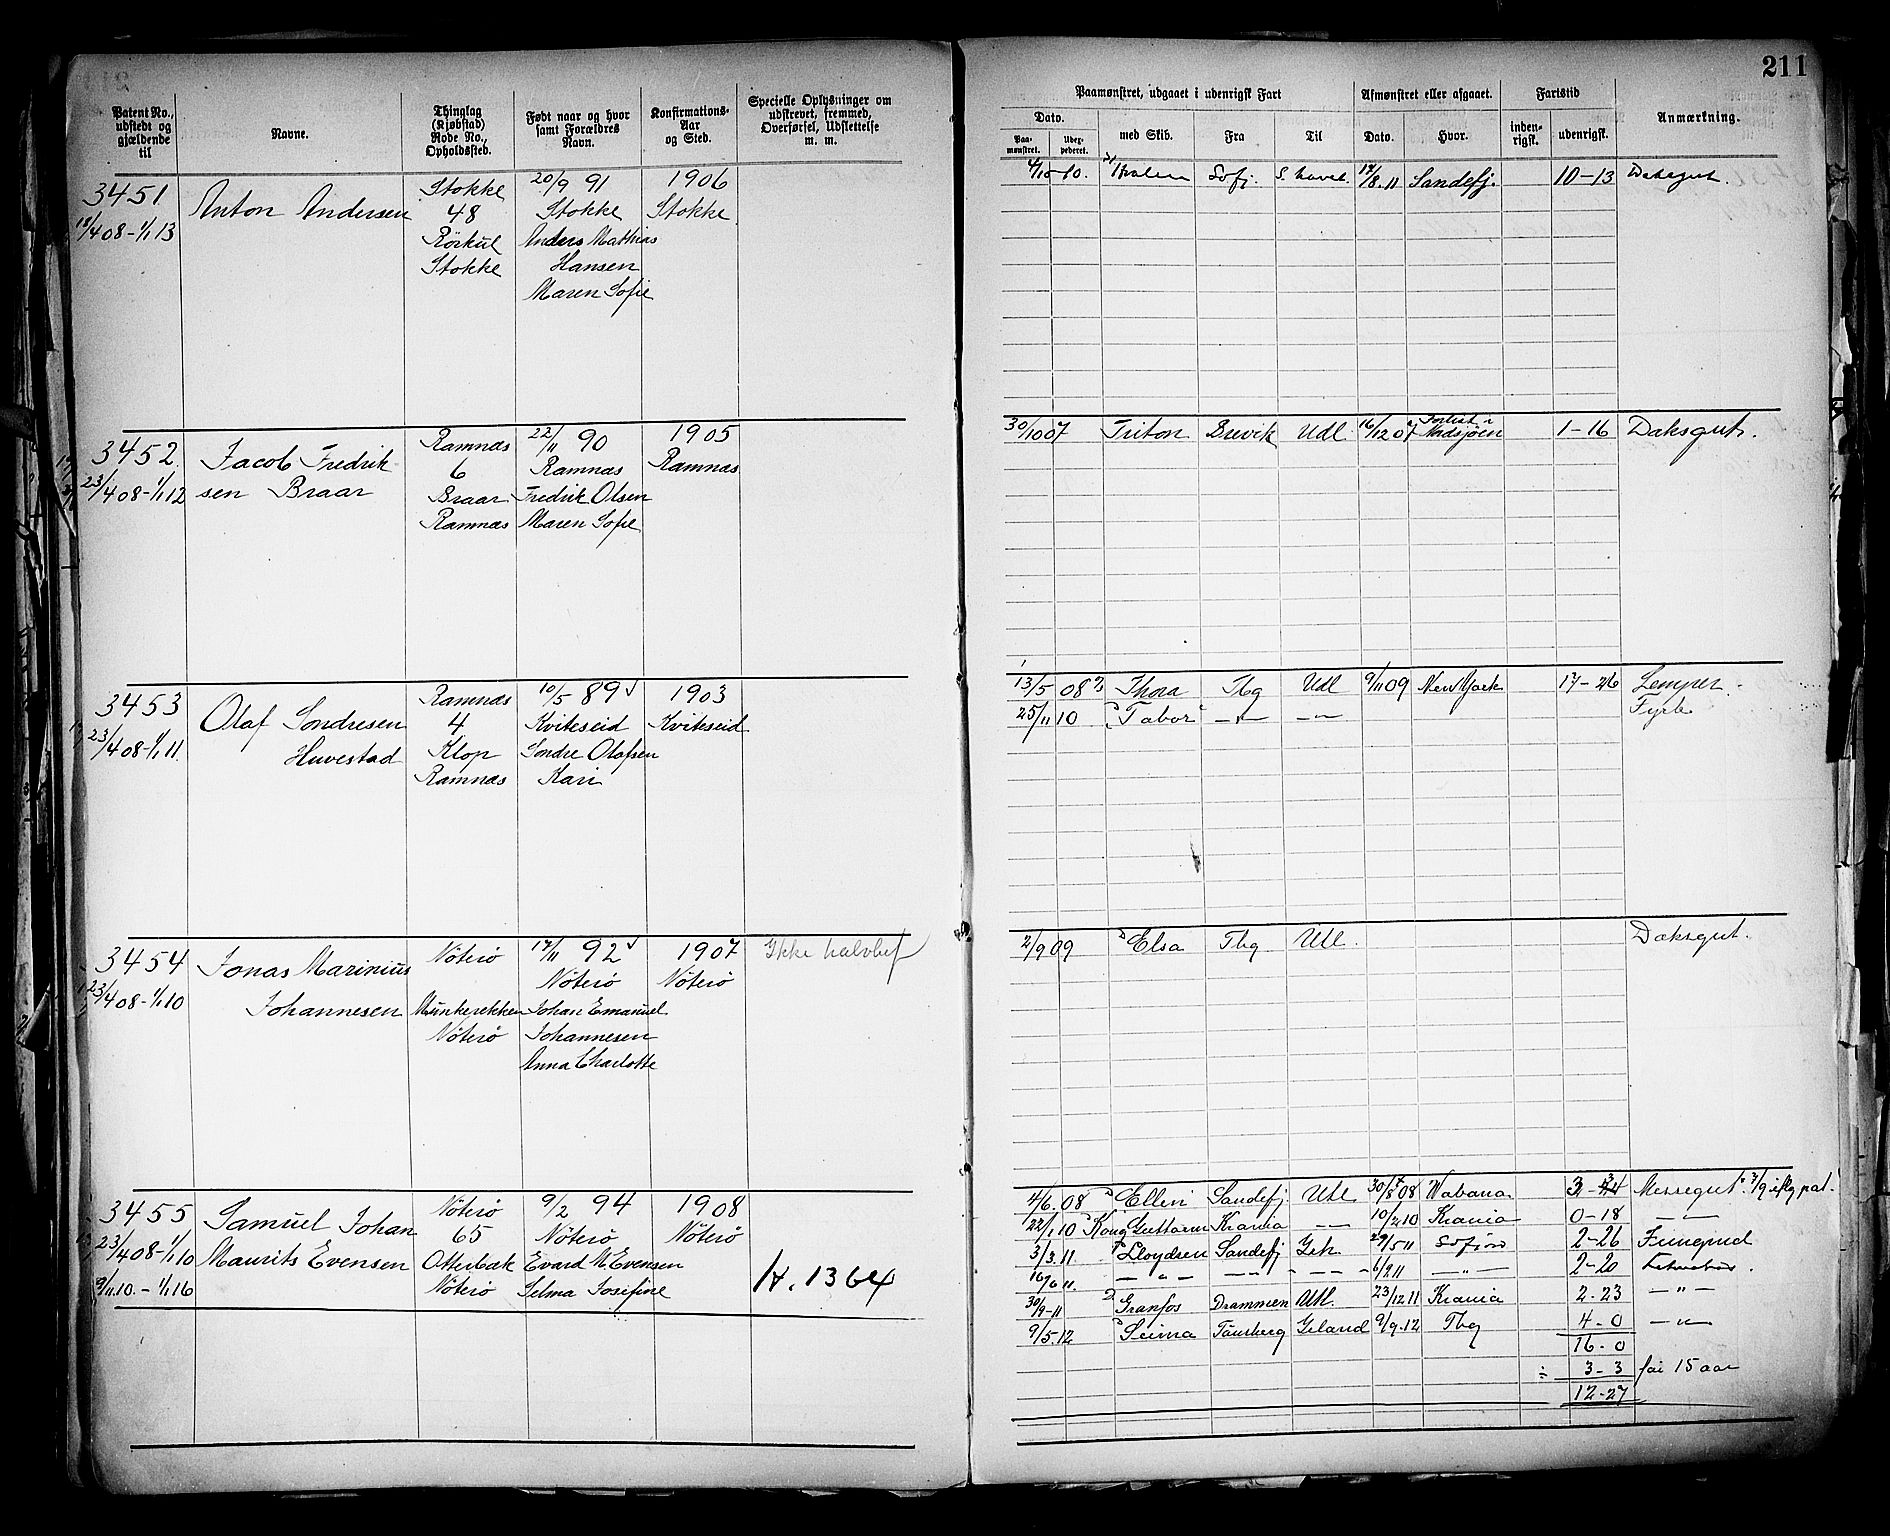 211
Patent No., udstedt og gjældende til
Navne.
Thinglag (Kjøbstad) Rode No., Opholdssted.
Født naar og hvor samt Forældres Navn.
Konfirmations-Aar og Sted.
Specielle Oplysninger om udstrevet, fremmed, Overførsel, Udslettelse m. m.
Paamønstret, udgaaet i udenrigsk Fart
Afmønstret eller afgaaet.
Fartstid
Anmærkning.
Dato.
Paa-mønstret.
Udex-pederet.
med Skib.
Fra
Til
Dato.
Hvor.
inden-rigsk.
udenrigsk.
3451
18/4 08 - 1/1 13
Anton Andersen
Stokke
48
Rörkul
Stokke
20/9 91
Stokke
Anders Mathias
Hansen
Maren Sofie
1906
Stokke
4/10-10. Sofj. S. 8.11 Sandefj. 10-13 Daksgut.
3452
23/4 08 - 1/1 12
Jacob Fredrik-
sen Braar
Ramnæs
6
Braar
Ramnæs
22/11 90
Ramnæs
Fredrik Olsen
Maren Sofie
1905
Ramnæs
30/10 07 Triton Brevik Udl 16/12 07 Forlist i Nordsjöen 1-16 Daksgut.
3453
23/4 08 - 1/1 11.
Olaf Sondresen
Huvestad
Ramnæs
4
Klop
Ramnæs
10/5 89
Kviteseid
Sondre Olafsen
Kari
1903
Kviteseid
13/5 08 Thora Tbg Udl 9/11 09 New York 17-26 Lemper
25/11 10 "Tabor" -"- -"- Fyrb
3454
23/4 08 - 1/1 10
Jonas Marinius
Johannesen
Nöterö
Munkerekken
Nöterö
17/11 92
Nöterö
Johan Emanuel
Johannesen
Anna Charlotte
1907
Nöterö
Ikke halvbef
2/9 09 Elsa Tbg Utl. Daksgut.
3455
23/4 08 - 1/1 10
9/11 10. - 1/1 16
Samuel Johan
Maurits Evensen
Nöterö
65
Otterbæk
Nöterö
9/2 94
Nöterö
Evard M Evensen
Selma Josefine
1908
Nöterö
H. 1364
4/6. 08 Ellivi Sandefj Utl 08 Wabana Messegut.
22/1 10 Kong Guttorm Krania -"- 10/2 10 Krania 0-18 -"-
3/3. 11. Lloydsen Sandefj 29/5 11 2-26 Jungmd
-"- -"- -"- 2-20
30/9-11 Granfos Drammen Utl. 23/12 11 Krania 2-23 -"-
9/5. 12 Seima Tönsberg 9/9. 12 Tbg 4-0 -"-
16-0
÷ 3-3 för 15 aar
12-27